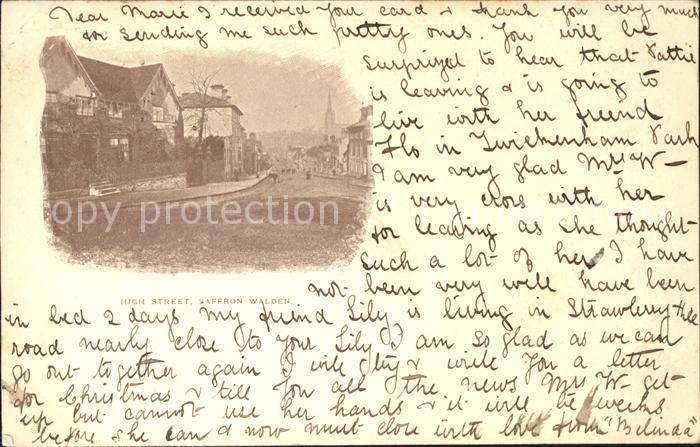 Dear Marie I received your card & thank you very much
for sending me such pretty ones. You will be
surprized to hear that Pattie
is leaving & is going to
live with her friend
Flo in Twickenham Park
I am very glad Mrs W—
is very cross with her
for leaving as she thought
such a lot of her. I have
not been very well have been
copy protection
HIGH STREET, SAFFRON WALDEN.
in bed 2 days my friend Lily is living in Strawberry Hill
road nearly close to your Lily I am so glad as we can
go out together again I will try & write you a letter
for Christmas & till you all the news Mrs W get
up but cannot use her hands & it will be weeks
before she can & now must close with love from Belinda